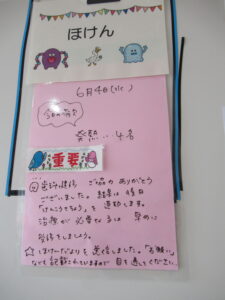 ほけん
6月4日(火)
今日の病欠
発熱‥4名
重要
ご協力 ありがとう
ございました。結果は後日
「けんこうてちょう」を通知します。
治療が必要な方は 早めに
しましょう。
☆ほけんだよりを 発信しました。「お願い」
なども記載されていますので 目を通してください。